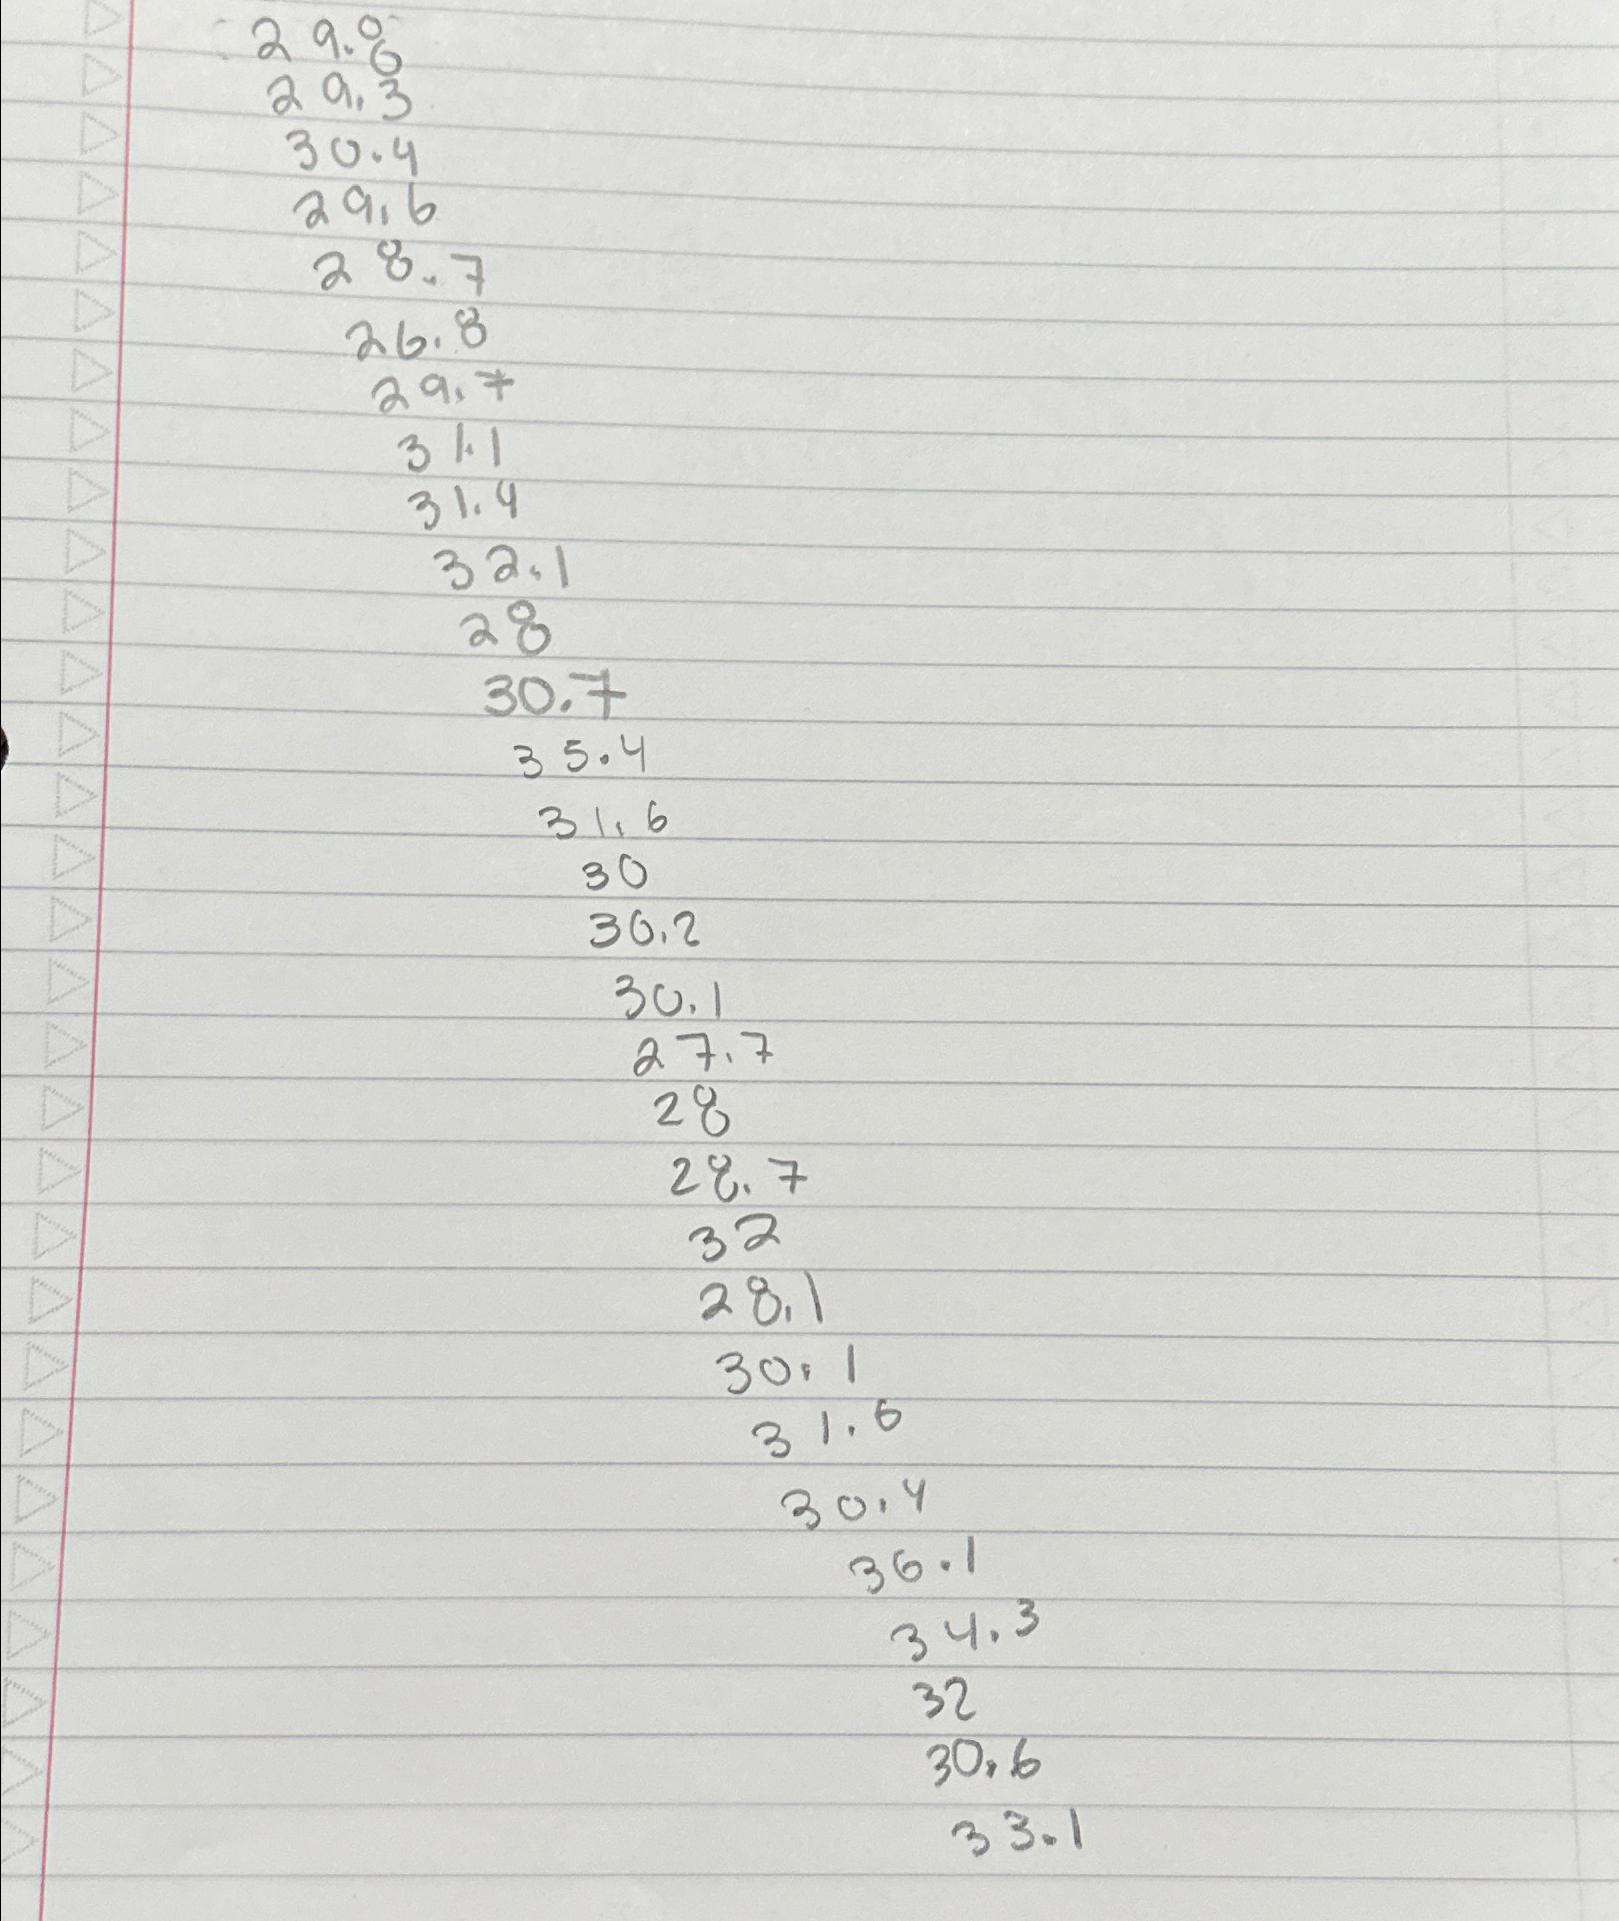 29.8
29.3
30.4
29.6
28.7
26.8
29.7
31.1
31.4
32.1
28
30.7
35.4
31.6
30
30.2
30.1
27.7
28
28.7
32
28.1
30.1
31.6
30.4
36.1
34.3
32
30.6
33.1